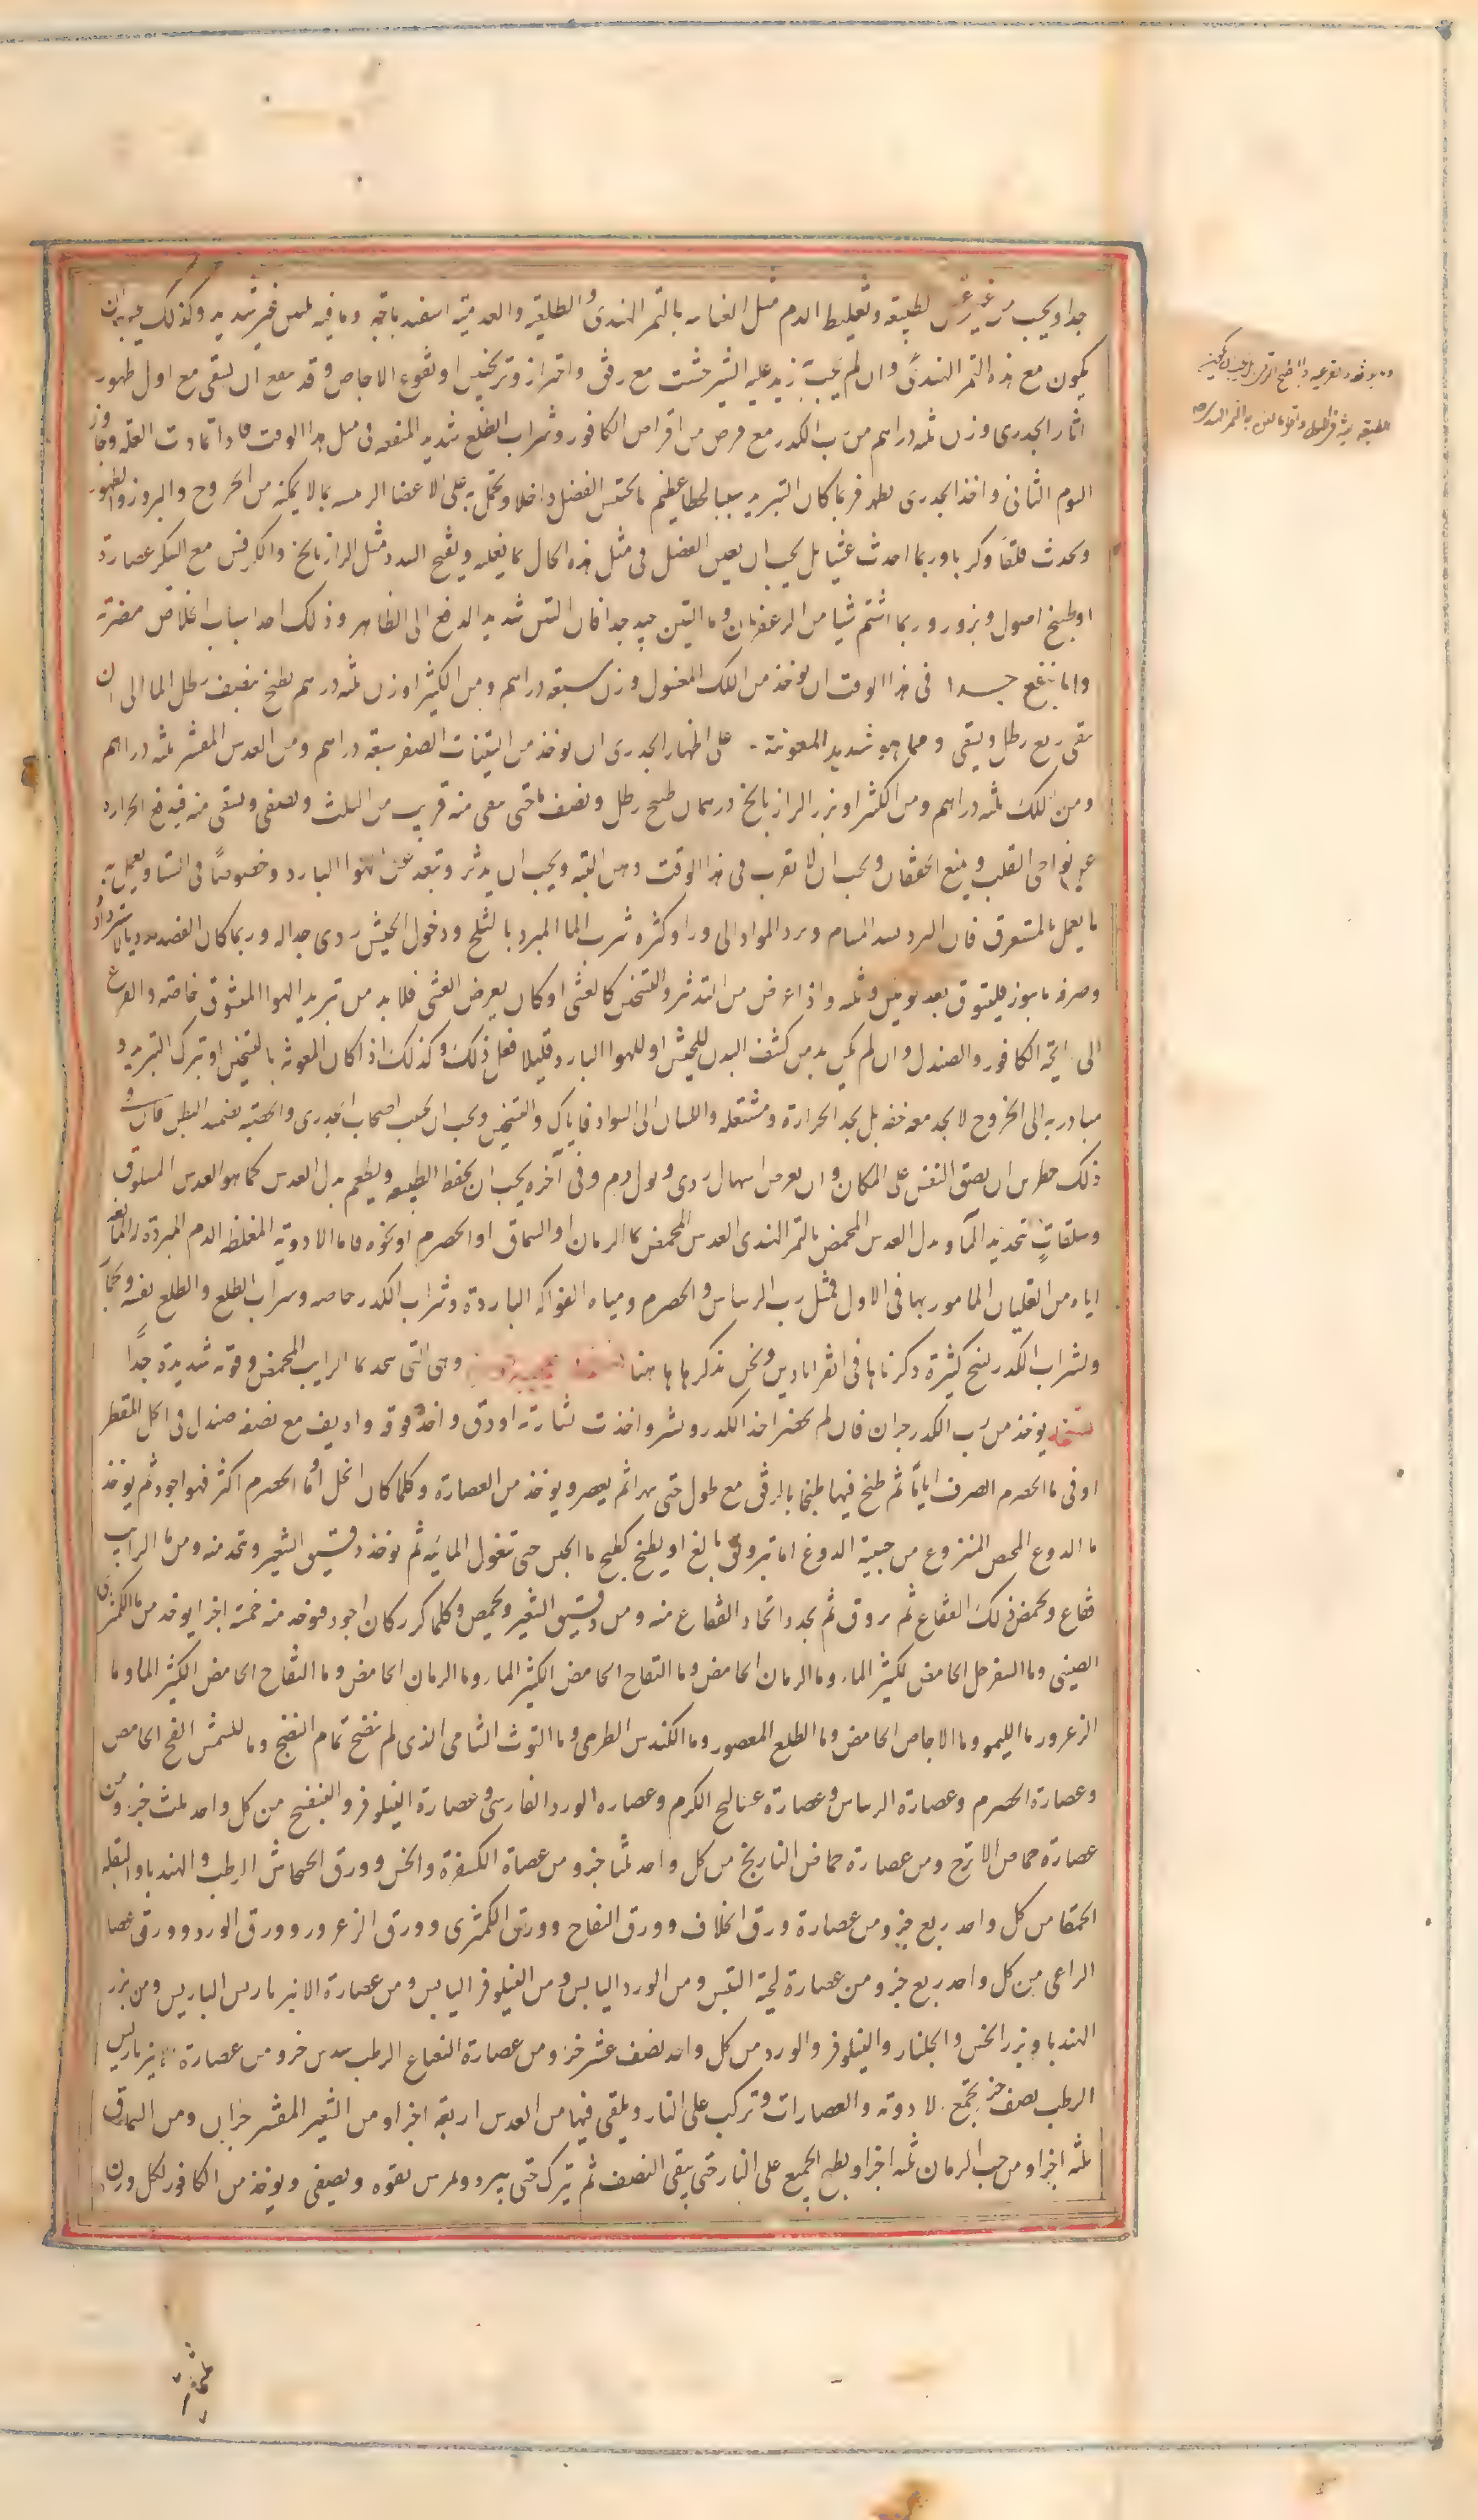 جدا ويجب لطيفه وتغليظ الدم مثل العناب بالتمر الهندى والطلعيه والعدسيه اسفيدباجه وما فيه تليين غير شديد وكذلك يجب ان
يكون مع هذه التمر الهندى وان لم يجب زيد عليه الشيرخشت مع رفق واحتراز وترنجبين او نقوع الاجاص وقد ينفع ان يسقى مع اول ظهور
اثار الجدرى وزن ثلثه دراهم من رب الكدر مع قرص من اقراص الكافور وشراب الطلع شديد المنفعه فى مثل هذا الوقت فاذا تمادت العله وجاوز
اليوم الثانى واخذ الجدرى يظهر فربما كان التبريد سببا لخطا عظيم بما يحتبس الفضل داخلا ويحمل به على الاعضا الرئيسه بما لا يمكنه من الخروج والبروز والظهور
ويحدث قلقا وكربا وربما احدث غشيا بل يجب ان يعين الفضل فى مثل هذه الحال بما يغليه ويفتح السدد مثل الرازيانج والكرفس مع السكر عصارة
او طبيخ اصول وبزور وربما اشتم شيا من الزعفران وما التين جيد جدا فان التين شديد الدفع الى الظاهر وذلك احد اسباب الخلاص من مضرته
وما ينفع جدا فى هذا الوقت ان يوخذ من اللك المغسول وزن سبعه دراهم ومن الكثيرا وزن ثلثه دراهم يطبخ بنصف رطل الما الى ان
يبقى ربع رطل ويسقى ومما هو شديد المعونة على اظهار الجدرى ان يوخذ من التينات الصفر سبعه دراهم ومن العدس المقشر ثلثه دراهم
ومن اللك ثلثه دراهم ومن الكثيرا وبزر الرازيانج درهمان يطبخ برطل ونصف ما حتى يبقى منه قريب من الثلث ويصفى ويسقى منه فيدفع الحراره
عن نواحى القلب ويمنع الخفقان ويجب ان لا يقرب فى هذا الوقت دهن البته ويجب ان يدثر ويبعد عن الهوا البارد وخصوصا فى الشتا ويعمل به
ما يعمل بالمتعرق فان البرد يسد المسام ويرد المواد الى ورا وكثره شرب الما المبرد بالثلج ودخول الخيش ردى جدا له وربما كان الفصد
وصرفه ما يوز فليتوق بعد يومين وثلثه واذا عرض من التدثر والتسخن كالغشى او كان يعرض الغشى فلا بد من تبريد الهوا المنشوق خاصه والفزع
الى رايحة الكافور والصندل وان لم يكن بد من كشف البدن للخيش او للهوا البارد قليلا فعل ذلك وكذلك اذا كان المعونه بالتسخين او بترك التبريد و
مبادرته الى الخروج لا يجد معه خفه بل يجد الحرارة ومشتعله واللسان الى السواد فاياك والتسخين ويجب ان يجنب اصحاب الجدرى والحصبه تضميد البطن فان
ذلك خطر من ان يضيق النفس على المكان وان يعرض اسهال ردى وبول دم وفى آخره يجب ان يحفظ الطبيعه ويطعم بدل العدس كما هو العدس المسلوق
وسلقات تجديد الما وبدل العدس المحمض بالتمر الهندى العدس المحمض بما الرمان او السماق او الحصرم او نحوه فاما الادوية المغلظه الدم المبردة له المانعه
اياه من الغليان المامور بها فى الاول فمثل رب الريباس والحصرم ومياه الفواكه الباردة وشراب الكدر خاصه وشراب الطلع والطلع نفسه وجمار
ولشراب الكدر نسخ كثيرة ذكرناها فى القراباذين ونحن نذكر ها هنا وهى التى تتخذ بما الرايب المحمض وقوته شديدة جداً
نسخه يوخذ من رب الكدر جزان فان لم يحضر اخذ الكدر ونشر واخذت نشارته او دق واخذ فوقه واديف مع نصفه صندل فى الخل المقطر
او فى ما الحصرم الصرف اياما ثم طبخ فيها طبخا بالرفق مع طول حتى يهرا ثم يعصر ويوخذ من العصارة وكلما كان الخل او ما الحصرم اكثر فهو اجود ثم يوخذ
ما الدوغ المخيض المنزوع من جبنية الدوغ اما بترويق بالغ او بطبخ كطبخ ما الجبن حتى تنعزل المائيه ثم يوخذ دقيق الشعير ويتخذ منه ومن ما الرايب
فقاع ويحمض ذلك الفقاع ثم يروق ثم يجدد اتخاذ الفقاع منه ومن دقيق الشعير ويحمض وكلما كرر كان اجود فيوخذ منه خمسة اجزا ويوخذ من ما الكمثرى
الصينى وما السفرجل الحامض لكثير الما وما الرمان الحامض وما التفاح الحامض الكثير الما وما الرمان الحامض وما التفاح الحامض الكثير الما وما
الزعرور ما الليمو وما الاجاص الحامض وما الطلع المعصور وما الكندس الطرى وما التوث الشامى الذى لم ينضج تمام النضج وما المشمش الفج الحامض
وعصارة الحصرم وعصارة الريباس وعصارة عساليج الكرم وعصاره الورد الفارسى وعصارة النيلوفر والبنفسج من كل واحد ثلث جزو ومن
عصارة حماض الاترج ومن عصارة حماض النارنج من كل واحد ثلثا جزو ومن عصارة الكسفرة والخس وورق الخشخاش الرطب والهندبا والبقله
الحمقا من كل واحد ربع جزو ومن عصارة ورق الخلاف وورق التفاح وورق الكمثرى وورق الزعرور وورق الورد وورق عصا
الراعى من كل واحد ربع جزو ومن عصارة لحية التيس ومن الورد اليابس ومن النيلوفر اليابس ومن عصارة الانبرباريس اليابس ومن بزر
الهندبا وبزر الخس والجلنار والنيلوفر والورد من كل واحد نصف عشر جزو ومن عصارة النعناع الرطب سدس جزو ومن عصارة انبرباريس
الرطب نصف جز يجمع الادوية والعصارات وتركب على النار ويلقى فيها من العدس اربعة اجزا ومن الشعير المقشر جزان ومن السماق
ثلثه اجزا ومن حب الرمان ثلثه اجزا ويطبخ الجميع على النار حتى يبقى النصف ثم يترك حتى يبرد ويمرس بقوه ويصفى ويوخذ من الكافور لكل وزن